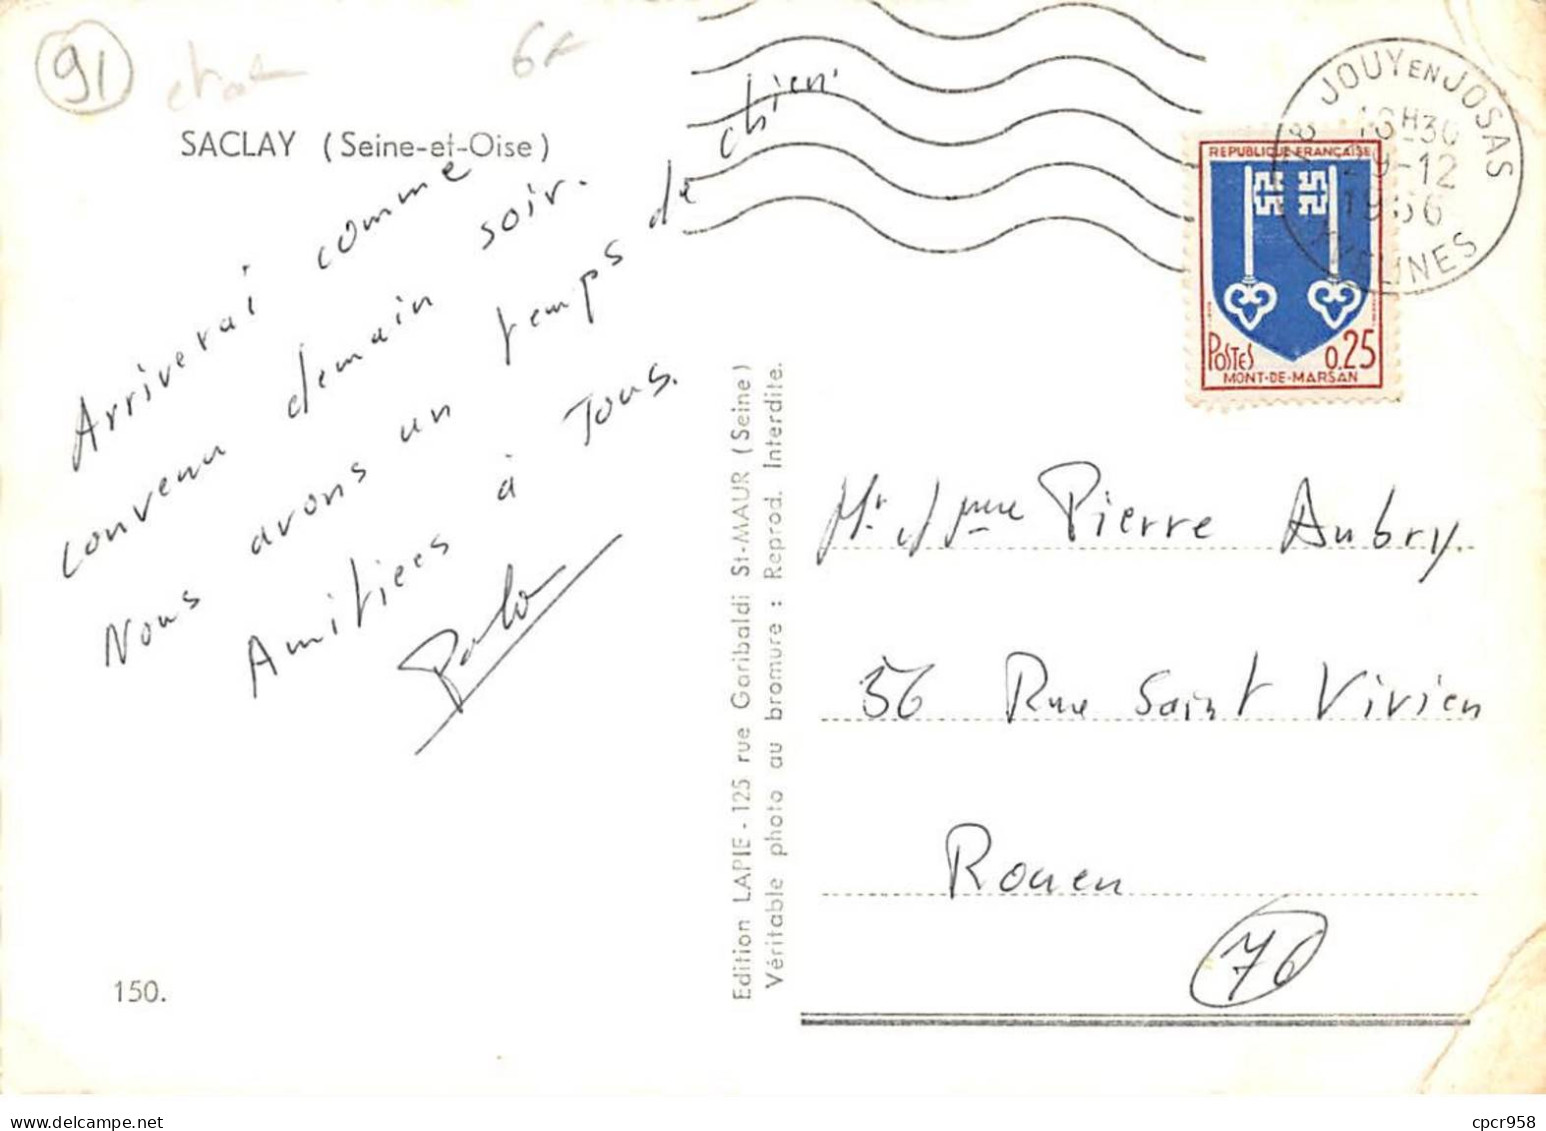 91
6€
SACLAY (Seine-et-Oise)
Arriverai comme
convenu demain soir.
Nous avons un temps de chien.
Amitiees à Tous.
150.
Edition LAPIE - 125 rue Garibaldi St-MAUR (Seine)
Véritable photo au bromure : Reprod. Interdite.
JOUY EN JOSAS
18H30
29-12
1966
YVELINES
REPUBLIQUE FRANÇAISE
POSTES 0.25
MONT-DE-MARSAN
Mr Mme Pierre Aubry.
56 Rue Saint Vivien
Rouen
76
cpcr958